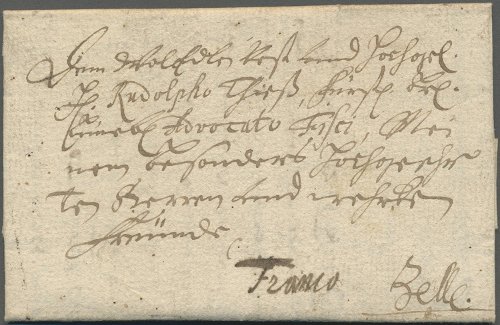 Dem WolEdlen Vest und Hochgel.
H. Rudolpho Thieß, Fürstl. Cel.
Lüneb. Advocato Fisci, Mei
nem besonders Hochgeehr
ten Herren und wehrten
freünde
Franco Zelle.